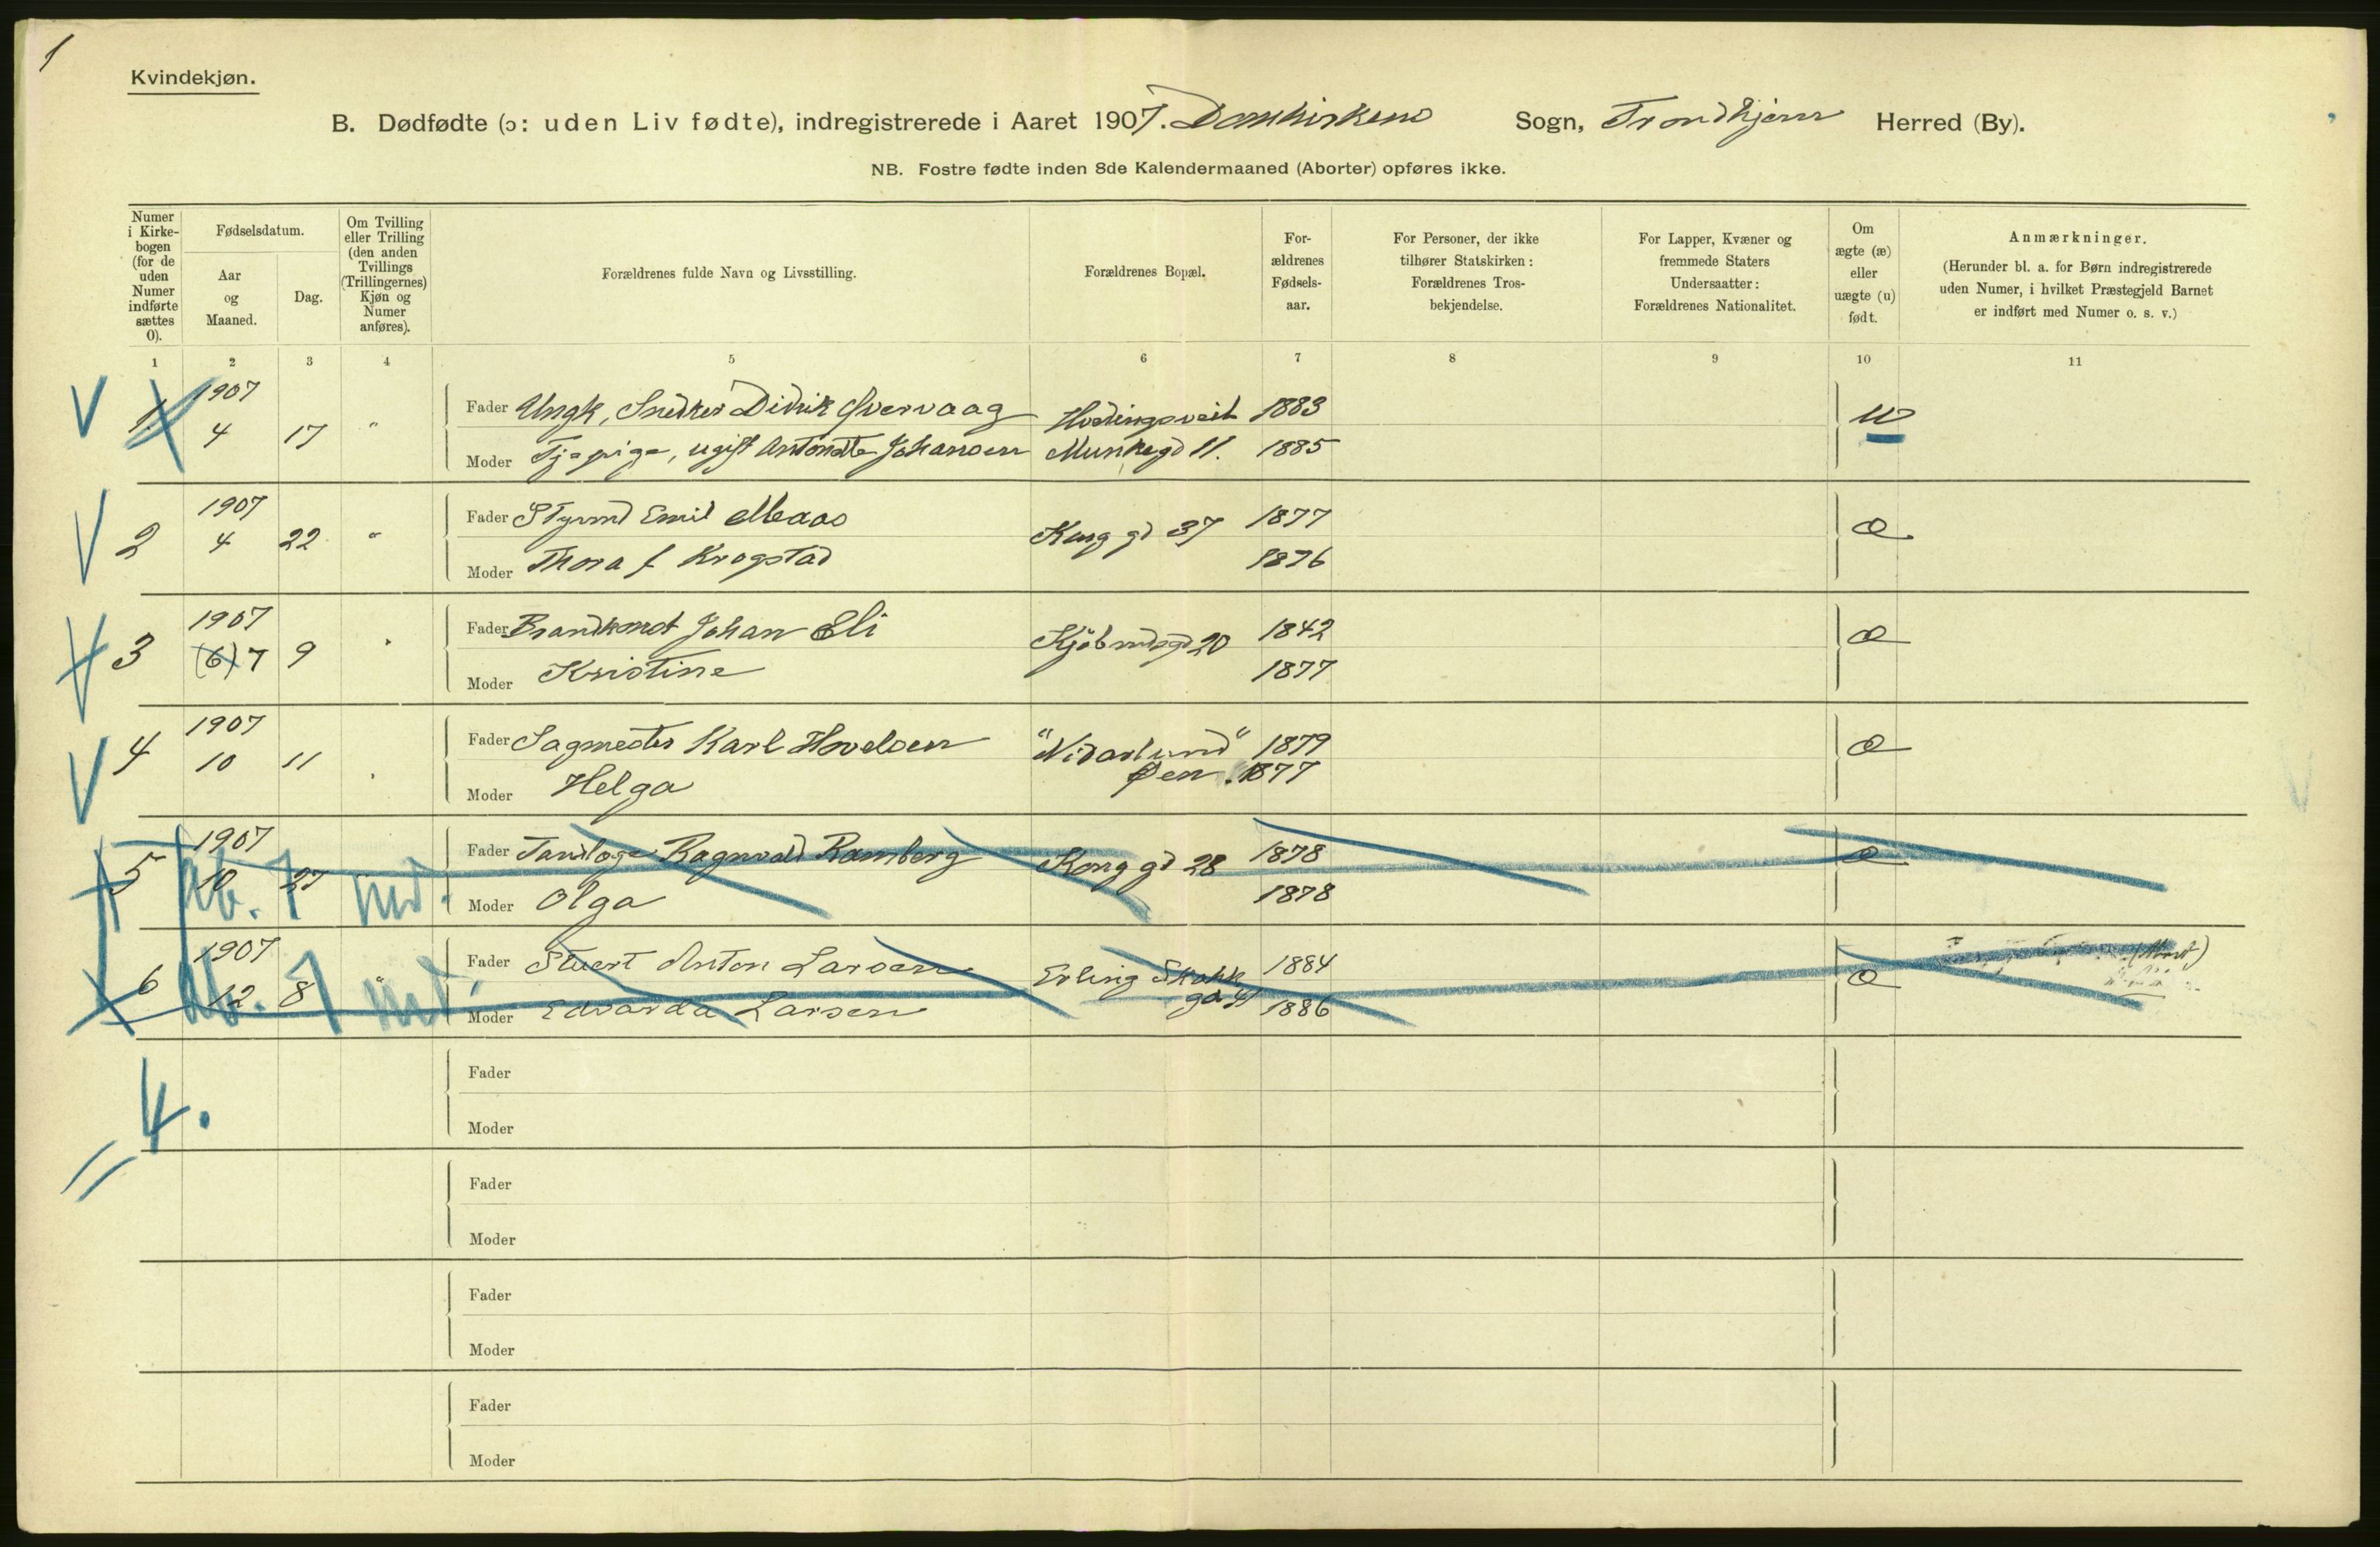 1
Kvindekjøn.
B. Dødfødte (ɔ: uden Liv fødte), indregistrerede i Aaret 1907. Domkirkens Sogn, Trondhjem Herred (By).
NB. Fostre fødte inden 8de Kalendermaaned (Aborter) opføres ikke.
Numer i Kirke- bogen (for de uden Numer indførte sættes 0).
Fødselsdatum.
Aar og Maaned.
Dag.
Om Tvilling eller Trilling (den anden Tvillings (Trillingernes) Kjøn og Numer anføres).
Forældrenes fulde Navn og Livsstilling.
Forældrenes Bopæl.
For- ældrenes Fødsels- aar.
For Personer, der ikke tilhører Statskirken: Forældrenes Tros- bekjendelse.
For Lapper, Kvæner og fremmede Staters Undersaatter: Forældrenes Nationalitet.
Om ægte (æ) eller uægte (u) født.
Anmærkninger.
(Herunder bl. a. for Børn indregistrerede uden Numer, i hvilket Præstegjeld Barnet er indført med Numer o. s. v.)
1 2 3 4 5 6 7 8 9 10 11
1907
1 4 17 "
Fader Ungk, Snedker Didrik 1883 u
Moder Tjpige, ugift Johansen Munkegd 11. 1885
1907
2 4 22 "
Fader Styrmd Emil Maas Kong gd 37 1877 æ
Moder Thora f. Krogstad 1876
1907
3 (6) 7 9 "
Fader Johan Eli Kjøbmdsgd 20 1842 æ
Moder Kristine 1877
1907
4 10 11
Fader Sagmester Karl Hovelsen "Nidarlund" 1879 æ
Øen. 1877
Moder Helga
1907
5 10 27 Ab. 7 md.
Fader Tandlæge Ragnvald Ramberg Kong gd 28 1878 æ
Moder Olga 1878
1907
6 12 8 " Ab. 7 md.
Fader Anton Larsen Erling Skakk gd 1884 æ (Abort)
Moder Edvarda Larsen 1886
= 4.
Fader
Moder
Fader
Moder
Fader
Moder
Fader
Moder